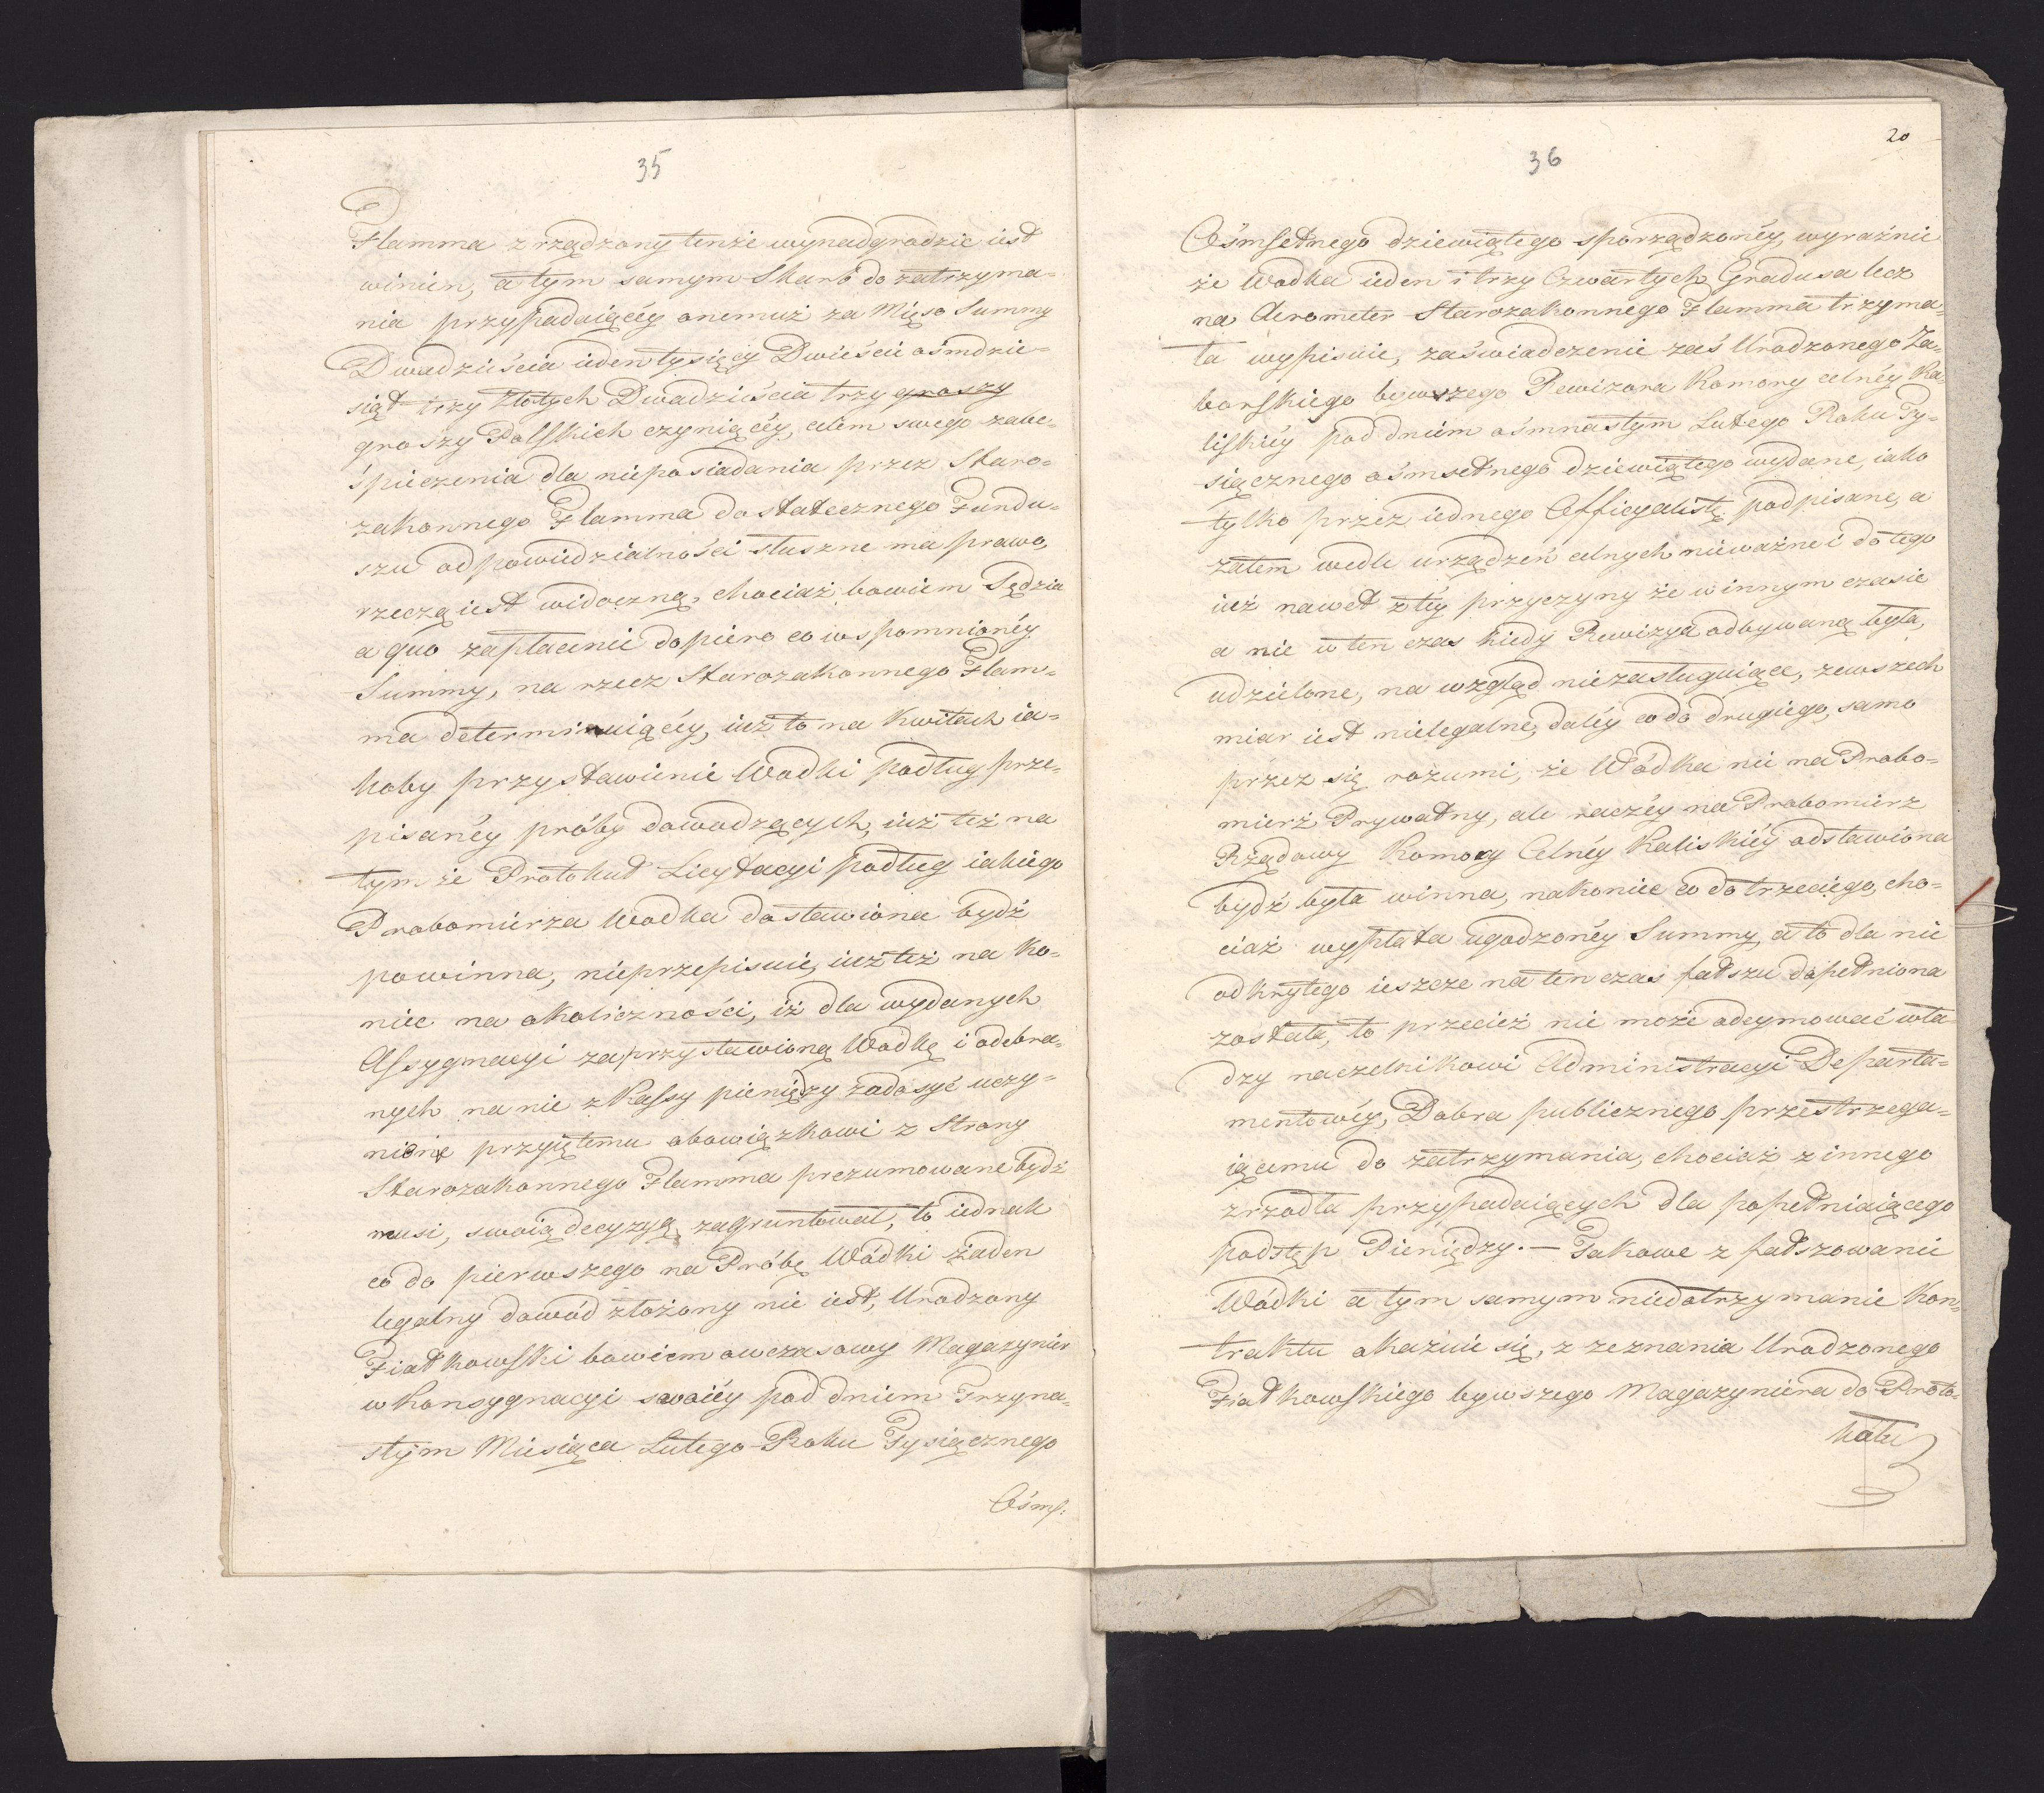 35
Flamma zrządzony tenże wynadgrodzić iest
winien, a tym samym Skarb do zatrzyma=
nia przypadaiącéy onemuż za Mięso Summy
Dwadzieścia ieden tysięcy Dwieście ośmdzie=
siąt trzy Złotych Dwadzieścia trzy groszy
groszy Polskich czyniącéy, celem swego zabe=
śpieczenia dla nieposiadania przez Staro=
zakonnego Flamma dostatecznego Fundu=
szu odpowiedzialności słuszne ma prawo,
rzeczą iest widoczną, chociaż bowiem Sędzia
a quo zapłacenie dopiero co wspomnionéy
Summy, na rzecz Starozakonnego Flam=
ma determinuiącéy, iuż to na Kwitach ia=
koby przystawienie Wodki podług prze=
pisanéy próby dowodzących, iuż też na
tym że Protokuł Licytacyi podług iakiego
Probomierza Wodka dostawiona bydź
powinna, nieprzepisuie, iuż też na ko=
niec na okoliczności, iż dla wydanych
Assygnacyi za przystawioną Wodkę i odebra=
nych na nie z Kassy pieniędzy zadosyć uczy=
nione przyiętemu obowiązkowi z Strony
Starozakonnego Flamma prezumowane bydź
musi, swoią decyzyą zagruntował, to iednak
co do pierwszego na Próbę Wódki żaden
legalny dowód złożony nie iest, Urodzony
Fiałkowski bowiem owczasowy Magazynier
w Konsygnacyi swoiéy pod dniem Trzyna=
stym Miesiąca Lutego Roku Tysiącznego
Ośms:
20
36
Ośmsetnego dziewiątego sporządzonéy, wyraźnie
że Wodka ieden i trzy Czwartych Gradusa lecz
na Aerometer Starozakonnego Flamma trzyma=
ła wypisuie, zaświadczenie zaś Urodzonego Za=
borskiego bywszego Rewizora Komory celnéy Ka=
liskiéy pod dniem ośmnastym Lutego Roku Ty=
siącznego ośmsetnego dziewiątego wydane, iako
tylko przez iednego Officyalistę podpisane, a
zatem wedle urządzeń celnych nieważne i do tego
iuż nawet z téy przyczyny że w innym czasie
a nie w ten czas kiedy Rewizya odbywaną była,
udzielone, na wzgląd niezasługuiące, zewszech
miar iest nielegalne, daléy co do drugiego, samo
przez się rozumi, że Wódka nie na Probo=
mierż Prywatny, ale raczéy na Probomierz
Rządowy Komory Celnéy Kaliskiéy odstawiona
bydź była winna, nakoniec co do trzeciego, cho=
ciaż wypłata ugodzonéy Summy, a to dla nie
odkrytego ieszcze na ten czas fałszu dopełniona
została, to przecież nie może odeymować wła=
dzy naczelnikowi Administracyi Departa=
mentowéy, Dobra publicznego przestrzega=
iącemu do zatrzymania, chociaż z innego
zrzodła przypadaiących dla popełniaiącego
podstęp Pieniędzy. — Takowe z fałszowanie
Wódki a tym samym niedotrzymanie Kon=
traktu okazuie się, z zeznania Urodzonego
Fiałkowskiego bywszego Magazyniera do Proto=
kułu